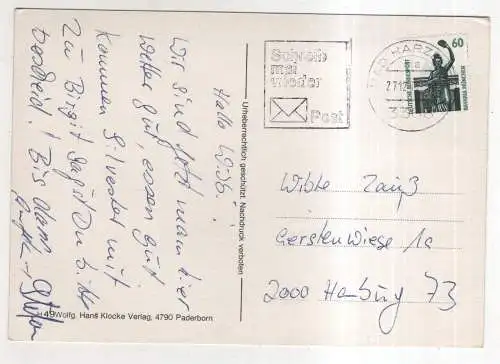 Hallo Wibke!
Wir sind jetzt man hier
Wetter gut, essen gut
kommen Silvester mit
zu Birgit. Sagst Du bitte
bescheid! Bis dann
Stefan
49 Wolfg. Hans Klocke Verlag, 4790 Paderborn
Urheberrechtlich geschützt. Nachdruck verboten
Schreib
mal
wieder
Post
BAD HARZ
60
DEUTSCHE BUNDESPOST
BAVARIA MÜNCHEN
Wibke
Gerstenwiese 1a
2000 Hamburg 73